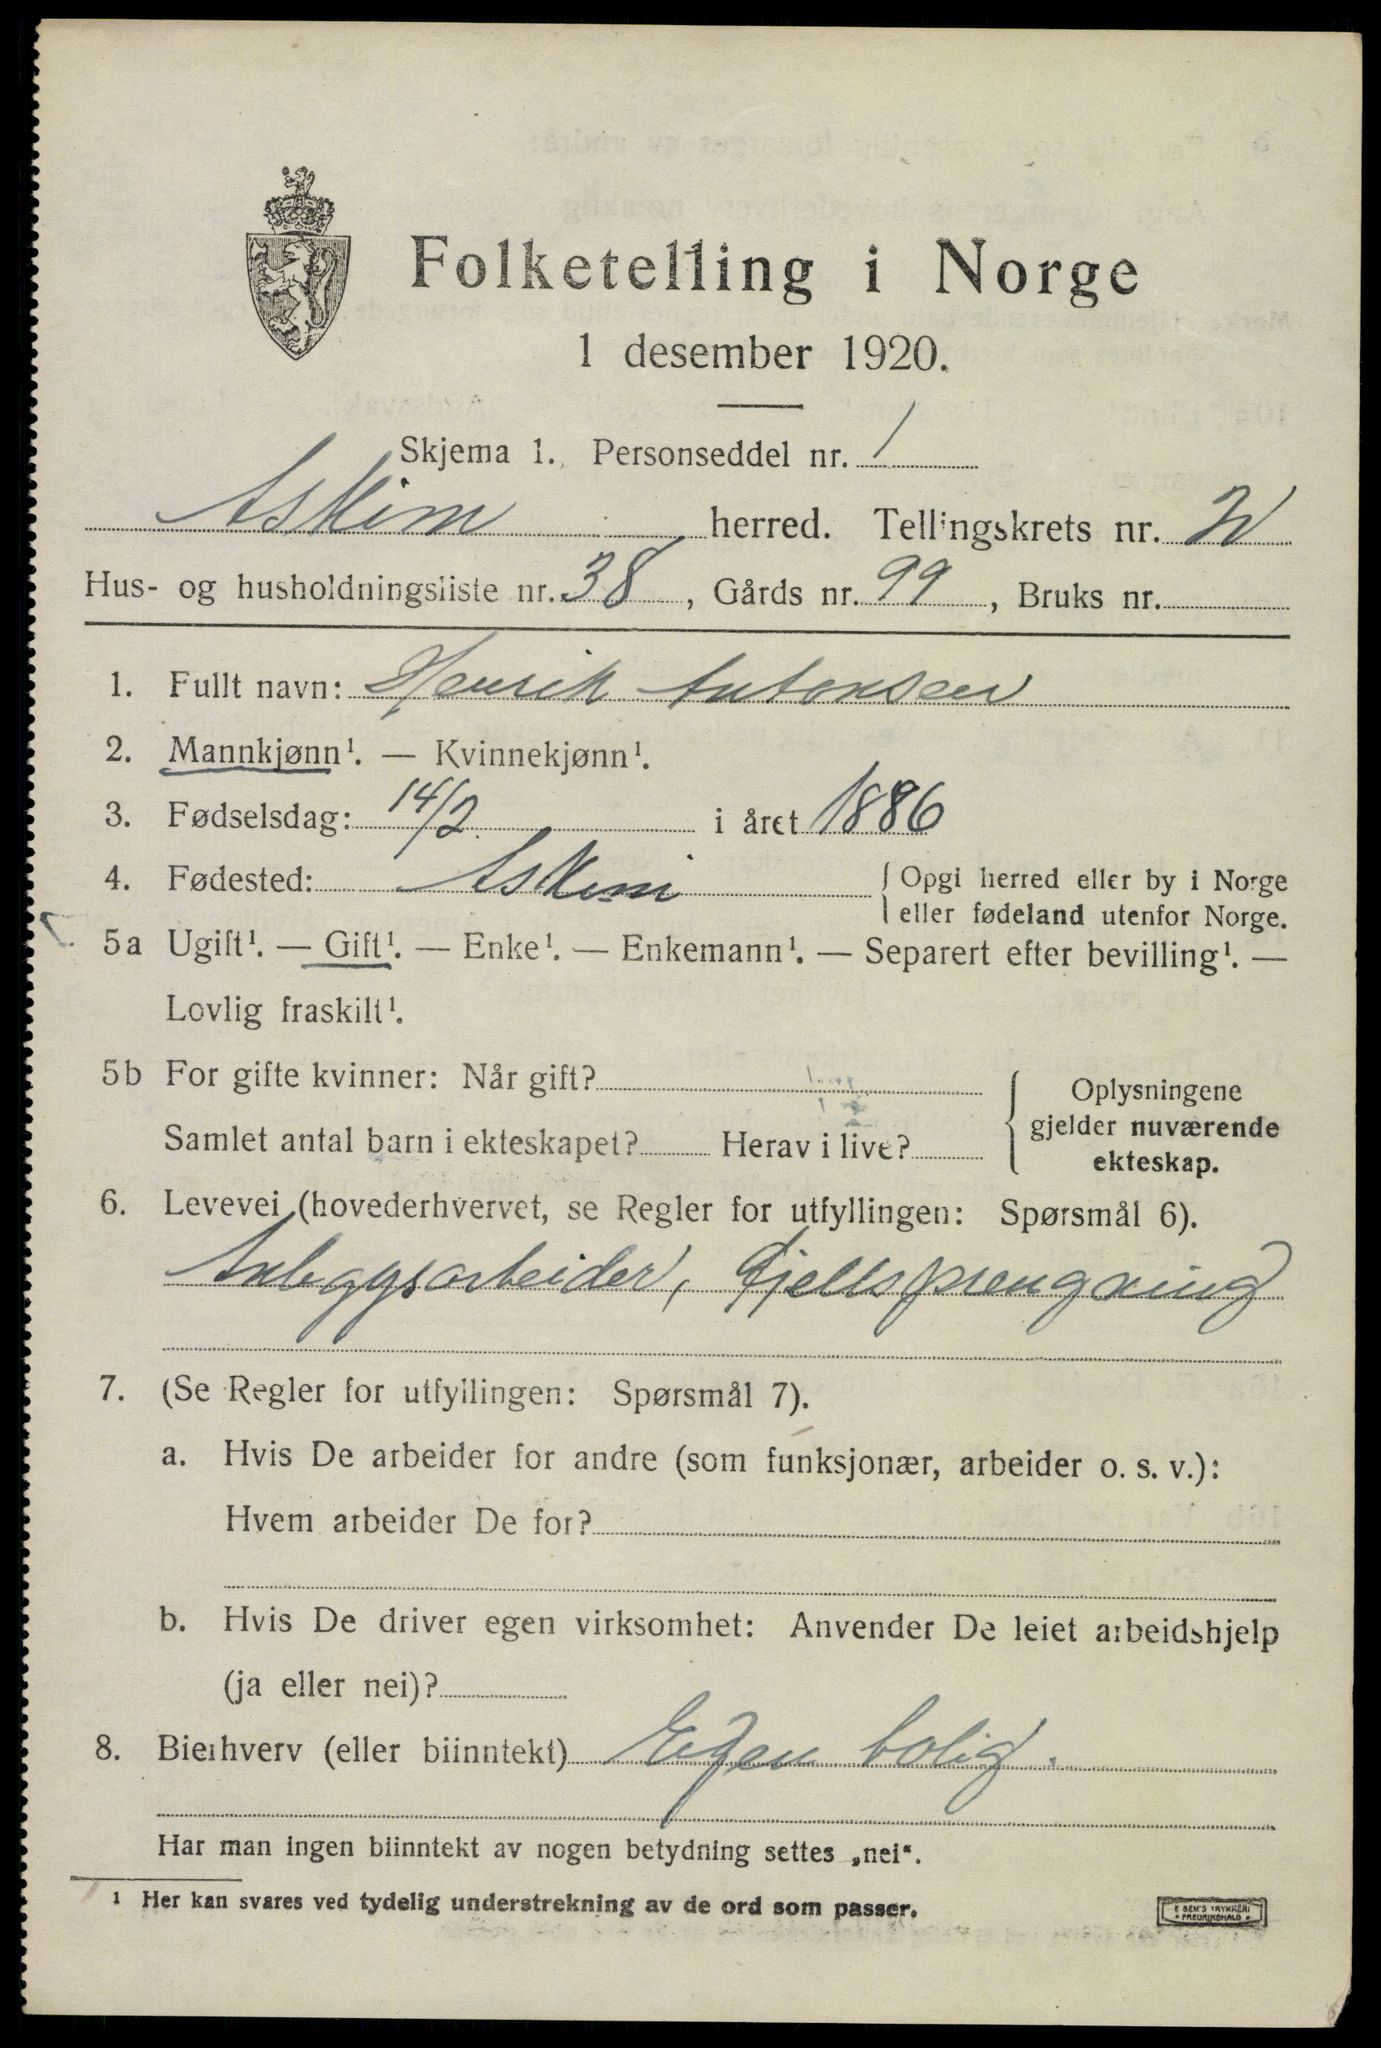 Folketelling i Norge
1 desember 1920.
Skjema 1. Personseddel nr. 1
Askim herred. Tellingskrets nr. 2
Hus- og husholdningsliste nr. 38, Gårds nr. 99, Bruks nr.
1. Fullt navn: Henrik Antonsen
2. Mannkjønn¹. — Kvinnekjønn¹.
3. Fødselsdag: 14/2 i året 1886
4. Fødested: Askim { Opgi herred eller by i Norge
eller fødeland utenfor Norge.
5a Ugift¹. — Gift¹. — Enke¹. — Enkemann¹. — Separert efter bevilling¹. —
Lovlig fraskilt¹.
5b For gifte kvinner: Når gift?
Samlet antal barn i ekteskapet? Herav i live?
{ Oplysningene
gjelder nuværende
ekteskap.
6. Levevei (hovederhvervet, se Regler for utfyllingen: Spørsmål 6).
Anleggsarbeider, Fjellsprengning
7. (Se Regler for utfyllingen: Spørsmål 7).
a. Hvis De arbeider for andre (som funksjonær, arbeider o. s. v.):
Hvem arbeider De for?
b. Hvis De driver egen virksomhet: Anvender De leiet arbeidshjelp
(ja eller nei)?
8. Bierhverv (eller biinntekt) Egen bolig.
Har man ingen biinntekt av nogen betydning settes „nei“.
1 Her kan svares ved tydelig understrekning av de ord som passer.
E SEM'S TRYKKERI
FREDRIKSHALD